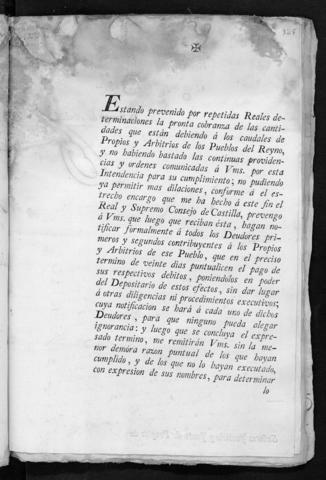 Estando prevenido por repetidas Reales de-
terminaciones la pronta cobranza de las canti-
dades que están debiendo á los caudales de
Propios y Arbitrios de los Pueblos del Reyno,
y no habiendo bastado las continuas providen-
cias y ordenes comunicadas á Vms. por esta
Intendencia para su cumplimiento; no pudiendo
ya permitir mas dilaciones, conforme á el es-
trecho encargo que me ha hecho á este fin el
Real y Supremo Consejo de Castilla, prevengo
á Vms. que luego que reciban ésta, hagan no-
tificar formalmente á todos los Deudores pri-
meros y segundos contribuyentes á los Propios
y Arbitrios de ese Pueblo, que en el preciso
termino de veinte dias puntualicen el pago de
sus respectivos debitos, poniendolos en poder
del Depositario de estos efectos, sin dar lugar
á otras diligencias ni procedimientos executivos;
cuya notificacion se hará á cada uno de dichos
Deudores, para que ninguno pueda alegar
ignorancia: y luego que se concluya el expre-
sado termino, me remitirán Vms. sin la me-
nor demóra razon puntual de los que hayan
cumplido, y de los que no lo hayan executado,
con expresion de sus nombres, para determinar
lo